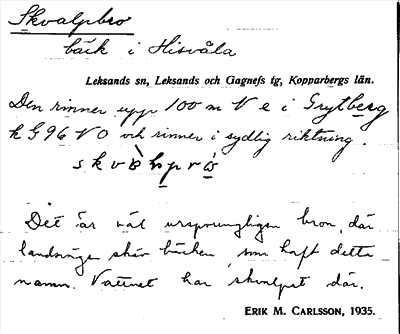 Skvalpbro
bäck i Hisvåla
Leksands sn, Leksands och Gagnefs tg, Kopparbergs län.
Den rinner upp 100 m V e i Grytberg
k G 96 V O och rinner i sydlig riktning.
Det är väl ursprungligen bron, där
landsvägen skär bäcken, som haft detta
namn. Vattnet har skvalpat där.
ERIK M. CARLSSON, 1935.